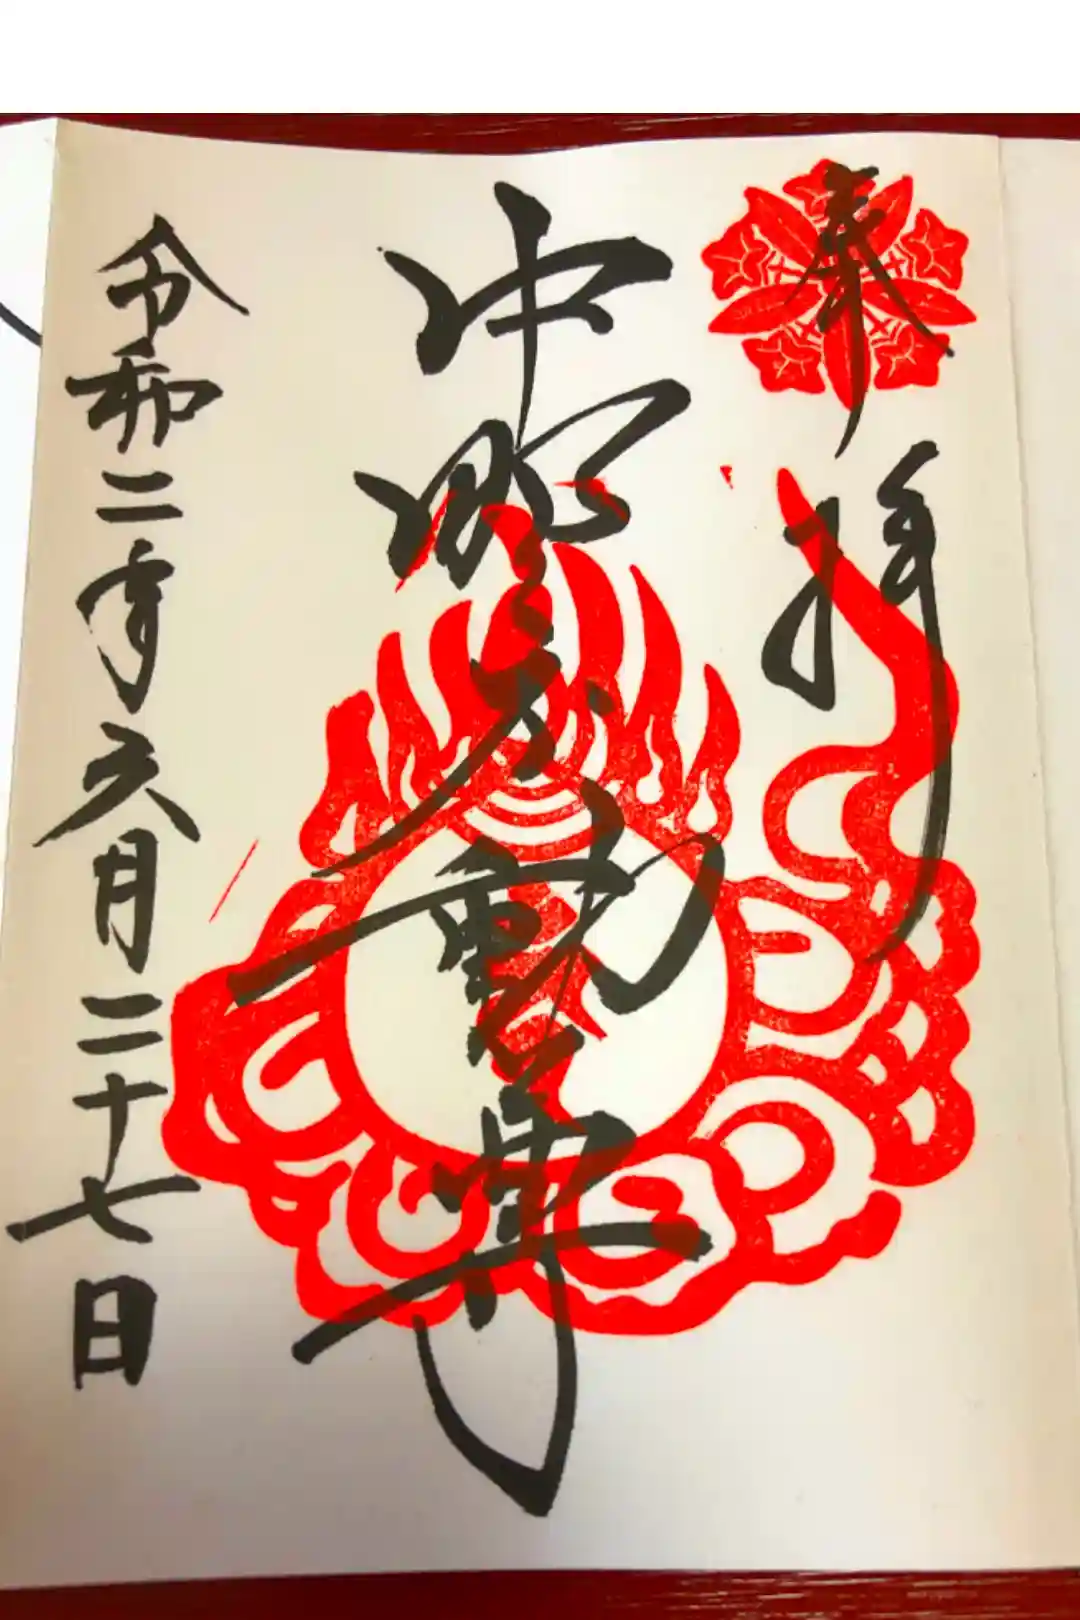 奉拝
中野不動尊
令和二年六月二十七日